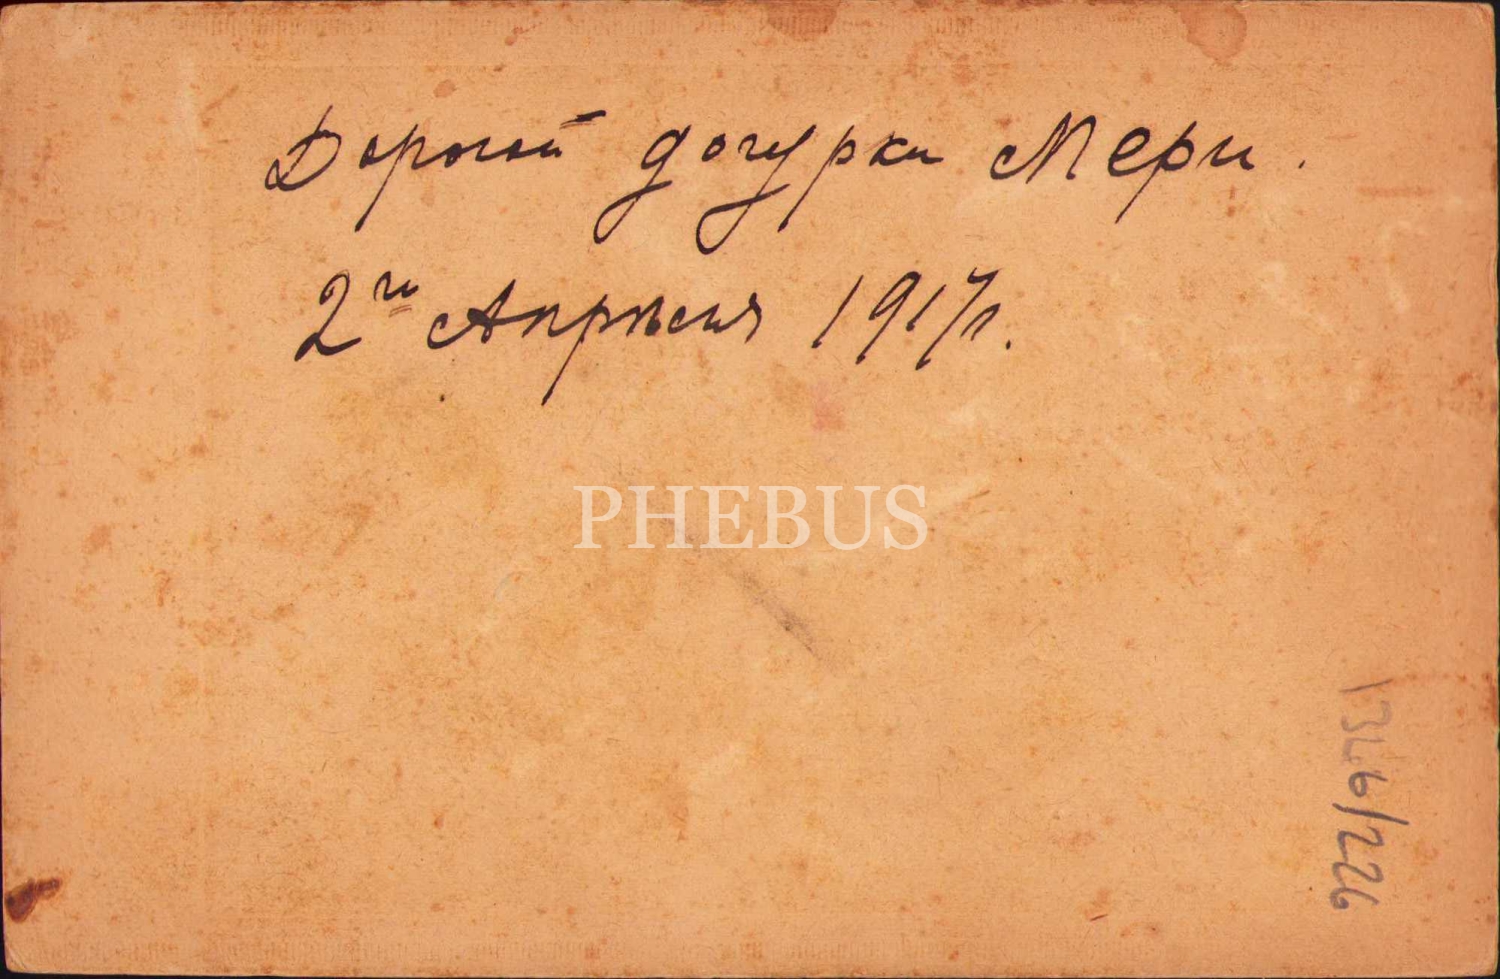 Дорогой дочурки Мери.
2го Апрѣля 1917г.
PHEBUS
1346/226